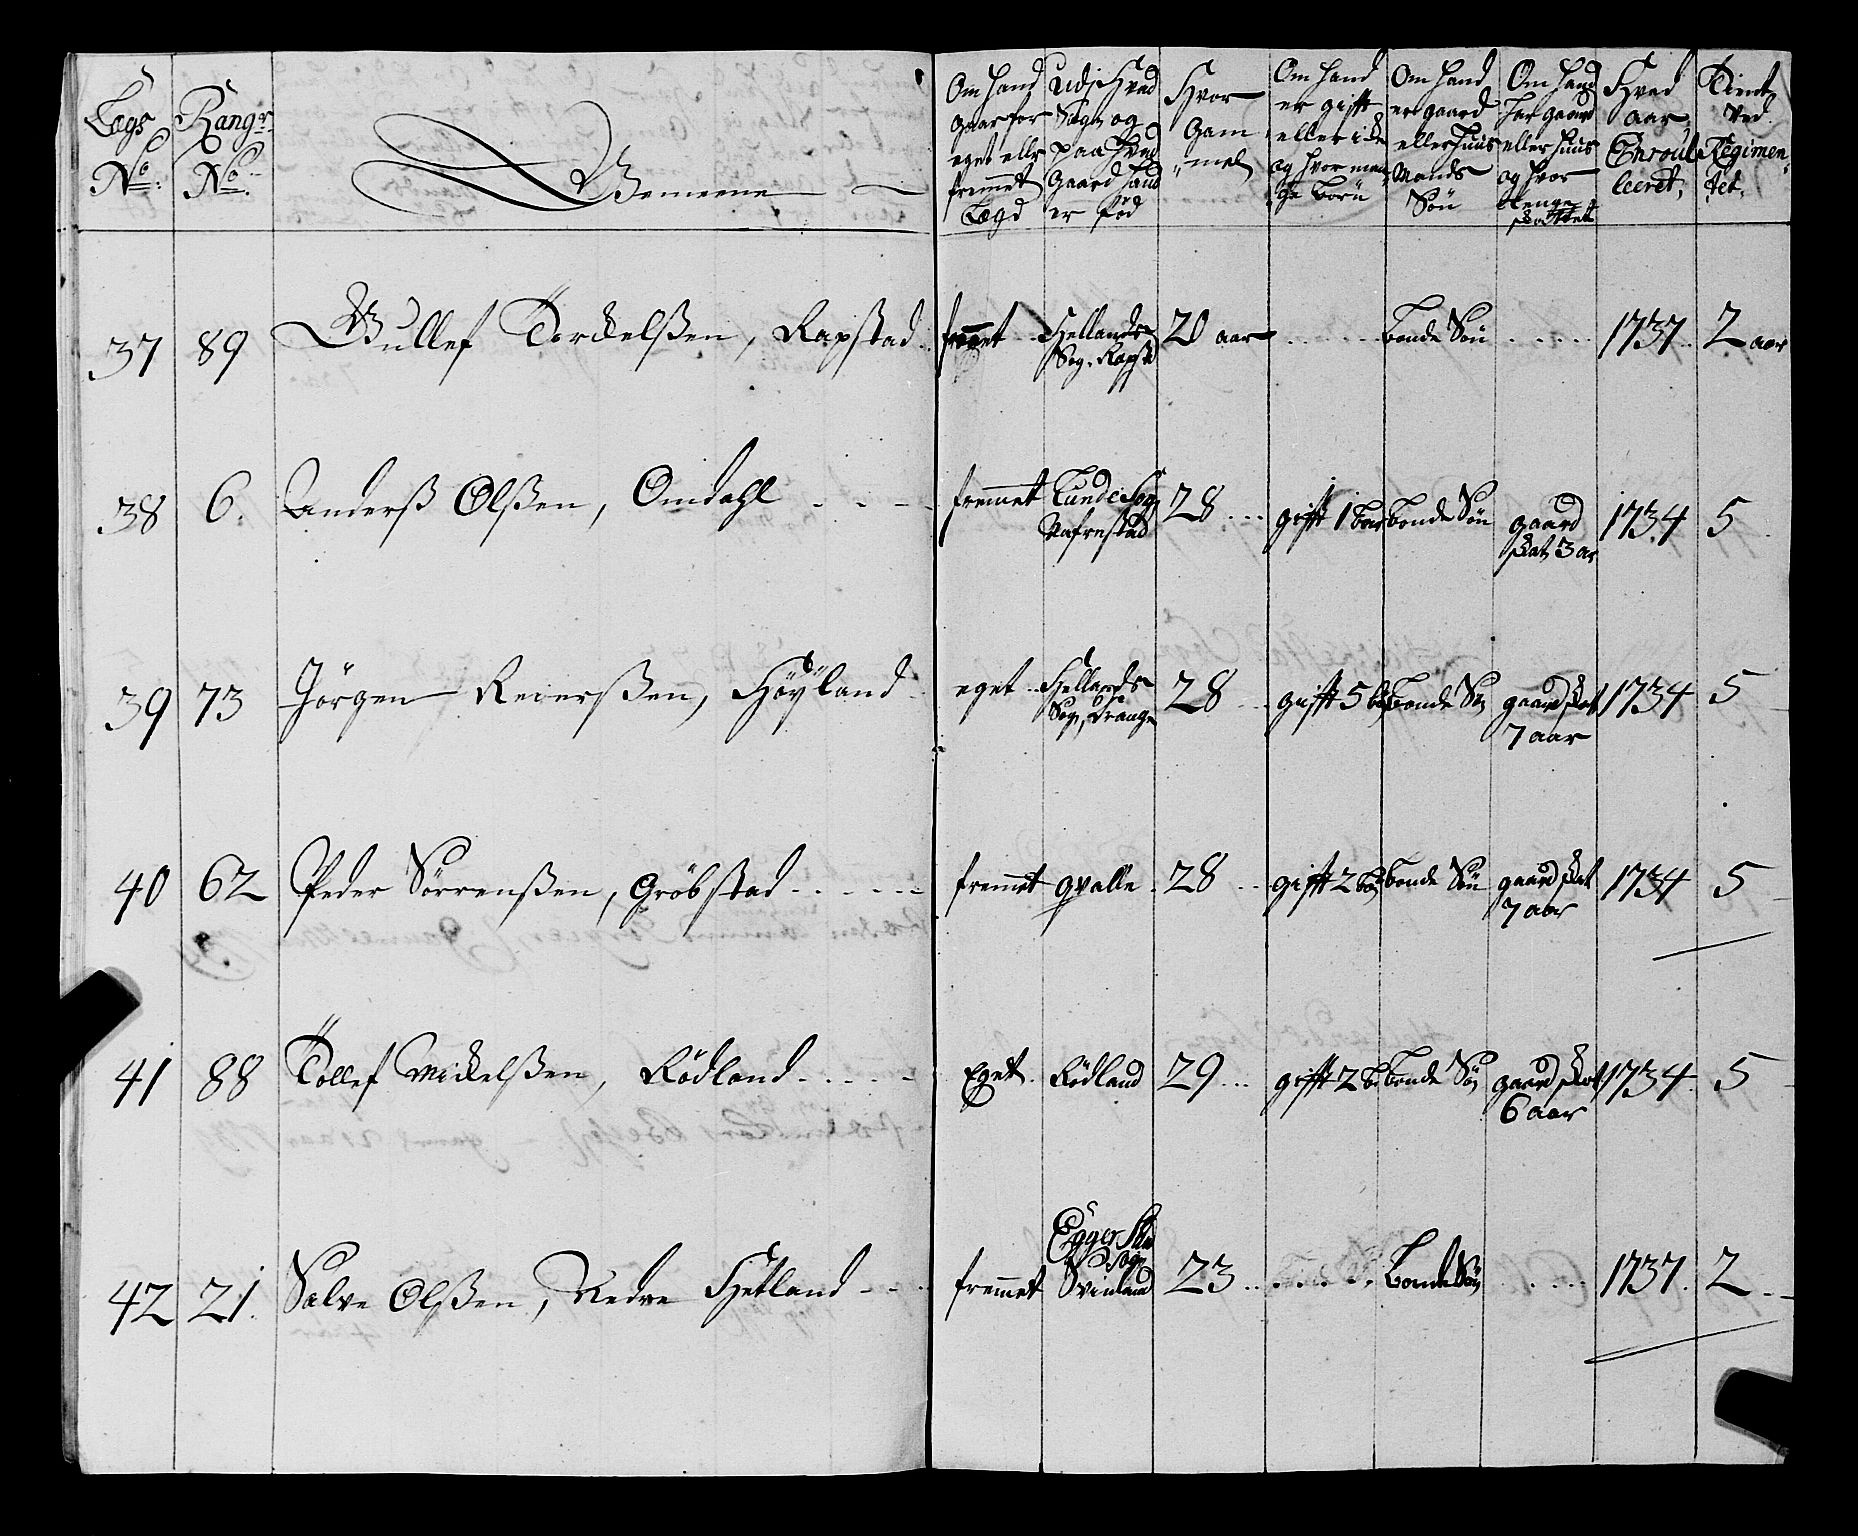 Lægs No: Rangr No. Gemeene Om Hand gaar for eget eller fremmet Lægd Udj Hvad Sogn og paa Hvad Gaard Hand er föd Hvor Gammel Om Hand er gifft eller icke og Hvor mange Börn Om Hand er gaard eller Huus Mands Sön Om Hand Har gaard eller Huus og Hvor lenge skattet Hved aar Enroulleeret, Tient ved Regimentet.
37 89 Gullef Torckelßen, Rapstad fremmet Hellands Sog. Rapst 20 aar bonde Sön 1737. 2 aar
38 6. Anderß Olßen, Omdahl fremmet Lunde Sog, Nafrestad 28 gifft 1 bar bonde Sön gaard skat 3 ar 1734 5
39 73 Jörgen Reierßen, Höÿland eget Hellands Sog, Drange 28 gifft 5 b bonde Sön gaard skat 7 aar 1734 5
40 62 Peder Sörrenßen, Gröbstad fremmet qvalle 28 gifft 2 bö bonde Sön gaard skat 7 aar 1734 5
41 88 Tollef Mickelßen, Rödland Eget Rödland 29 gifft 2 b bonde Sön gaard skat 6 aar 1734 5
42 21. Salve Olßen, Nedre Hetland fremmet Egger Sogn Svinland 23 Bonde Sön 1737. 2